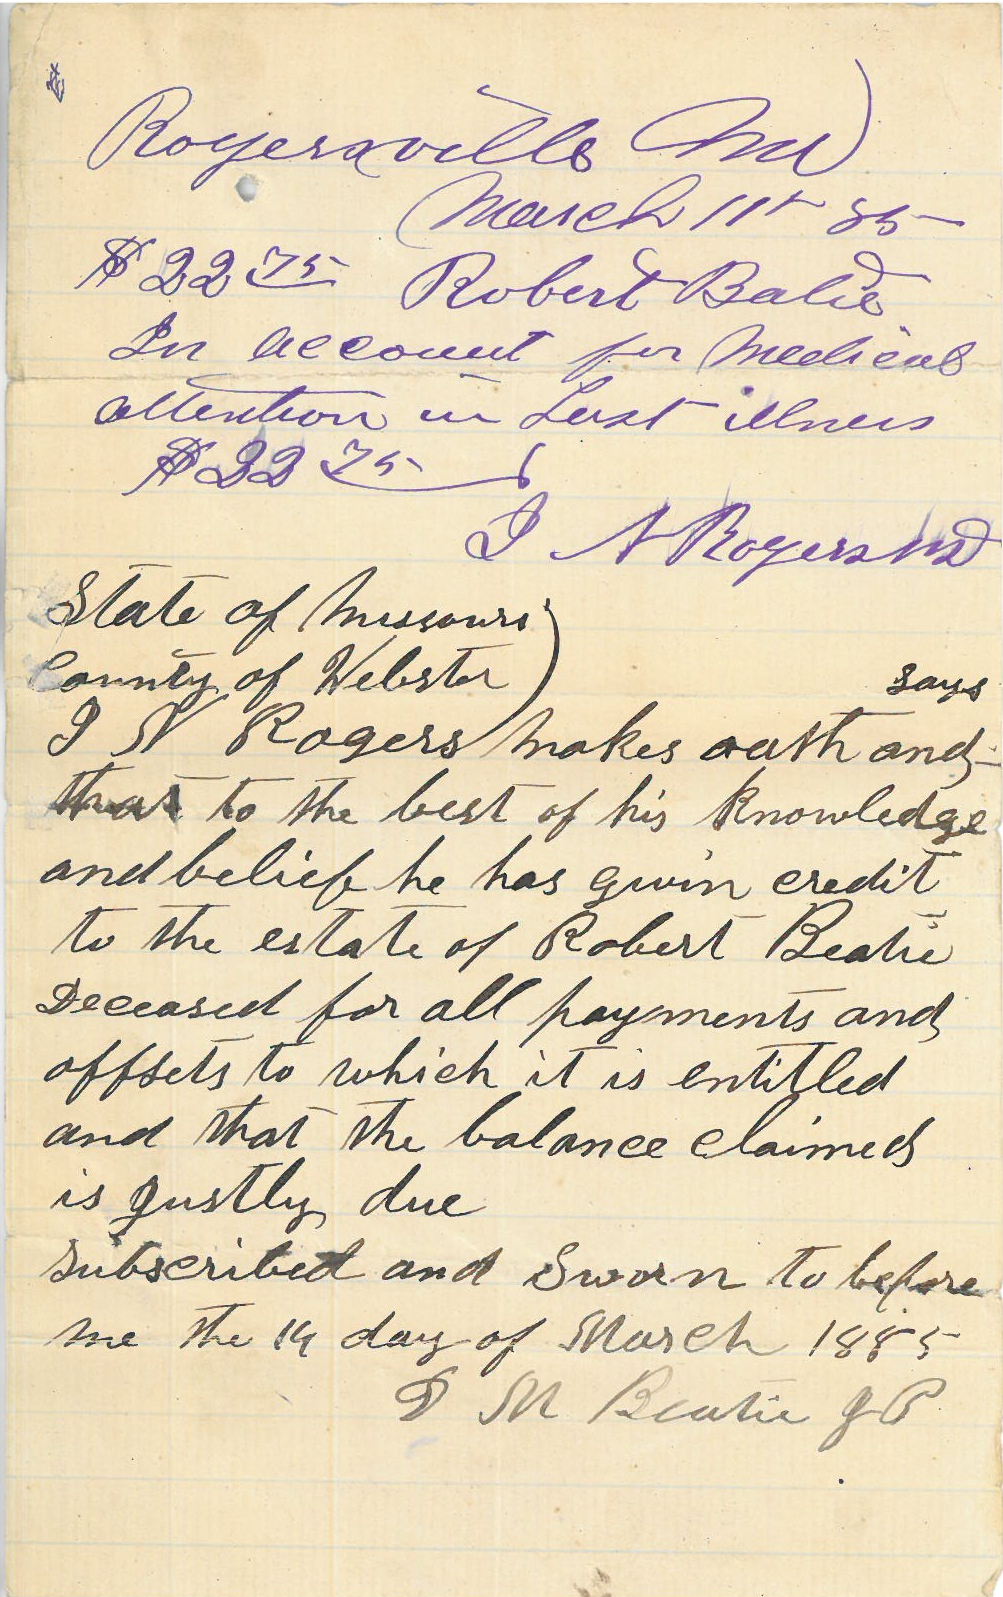 Rogersville Mo
March 11th 85
$22 75 Robert Batie
In account for Medical
attention in Last illness
$22 75
I N Rogers MD
State of Missouri
County of Webster
says
I N Rogers makes oath and
that to the best of his knowledge
and belief he has givin credit
to the estate of Robert Beatie
Deceased for all payments and
offsets to which it is entitled
and that the balance claimed
is justly due
subscribed and Sworn to before
me the 14 day of March 1885
M Beatie JP